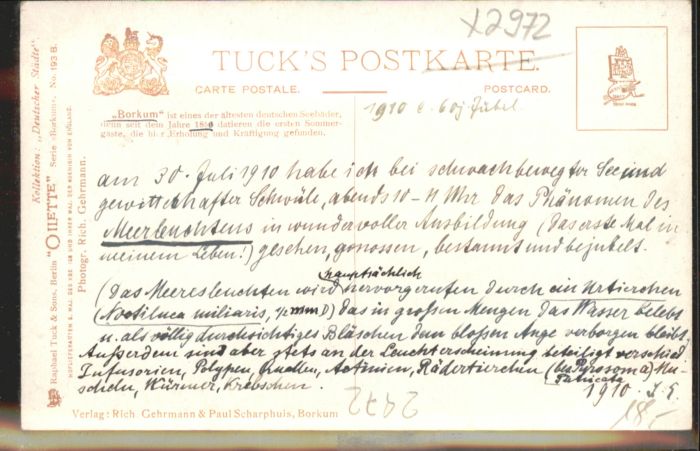 X2972
TUCK'S POSTKARTE.
CARTE POSTALE. POSTCARD.
„Borkum“ ist eines der ältesten deutschen Seebäder,
denn seit dem Jahre 1850 datieren die ersten Sommer-
gäste, die hier Erholung und Kräftigung gefunden.
1910 60j Jubel.
am 30. Juli 1910 habe ich bei schwachbewegter See und
gewitterhafter Schwüle, abends 10–11 Uhr das Phänomen des
Meerleuchtens in wundervoller Ausbildung (das erste Mal in
meinem Leben!) gesehen, genossen, bestaunt und bejubelt.
hauptsächlich
(Das Meeresleuchten wird hervorgerufen durch ein Urtierchen
(Noctiluca miliaris, ½ mm D) das in großen Mengen das Wasser belebt
u. als völlig durchsichtiges Bläschen dem bloßen Auge verborgen bleibt.
Außerdem sind aber stets an der Leuchterscheinung beteiligt verschied
Infusorien, Polypen, Quallen, Actinien, Rädertierchen (bes Pyrosoma) Mu-
scheln, Würmer, Krebschen.
1910
2472
18.-
Verlag: Rich Gehrmann & Paul Scharphuis, Borkum
Kollektion: „Deutscher Städte“
Raphael Tuck & Sons, Berlin "OILETTE" Serie „Borkum“, No. 193 B.
HOFLIEFERANTEN S. MAJ. DES KÖNIGS UND IHRER MAJ. DER KÖNIGIN VON ENGLAND.
Photogr. Rich. Gehrmann.